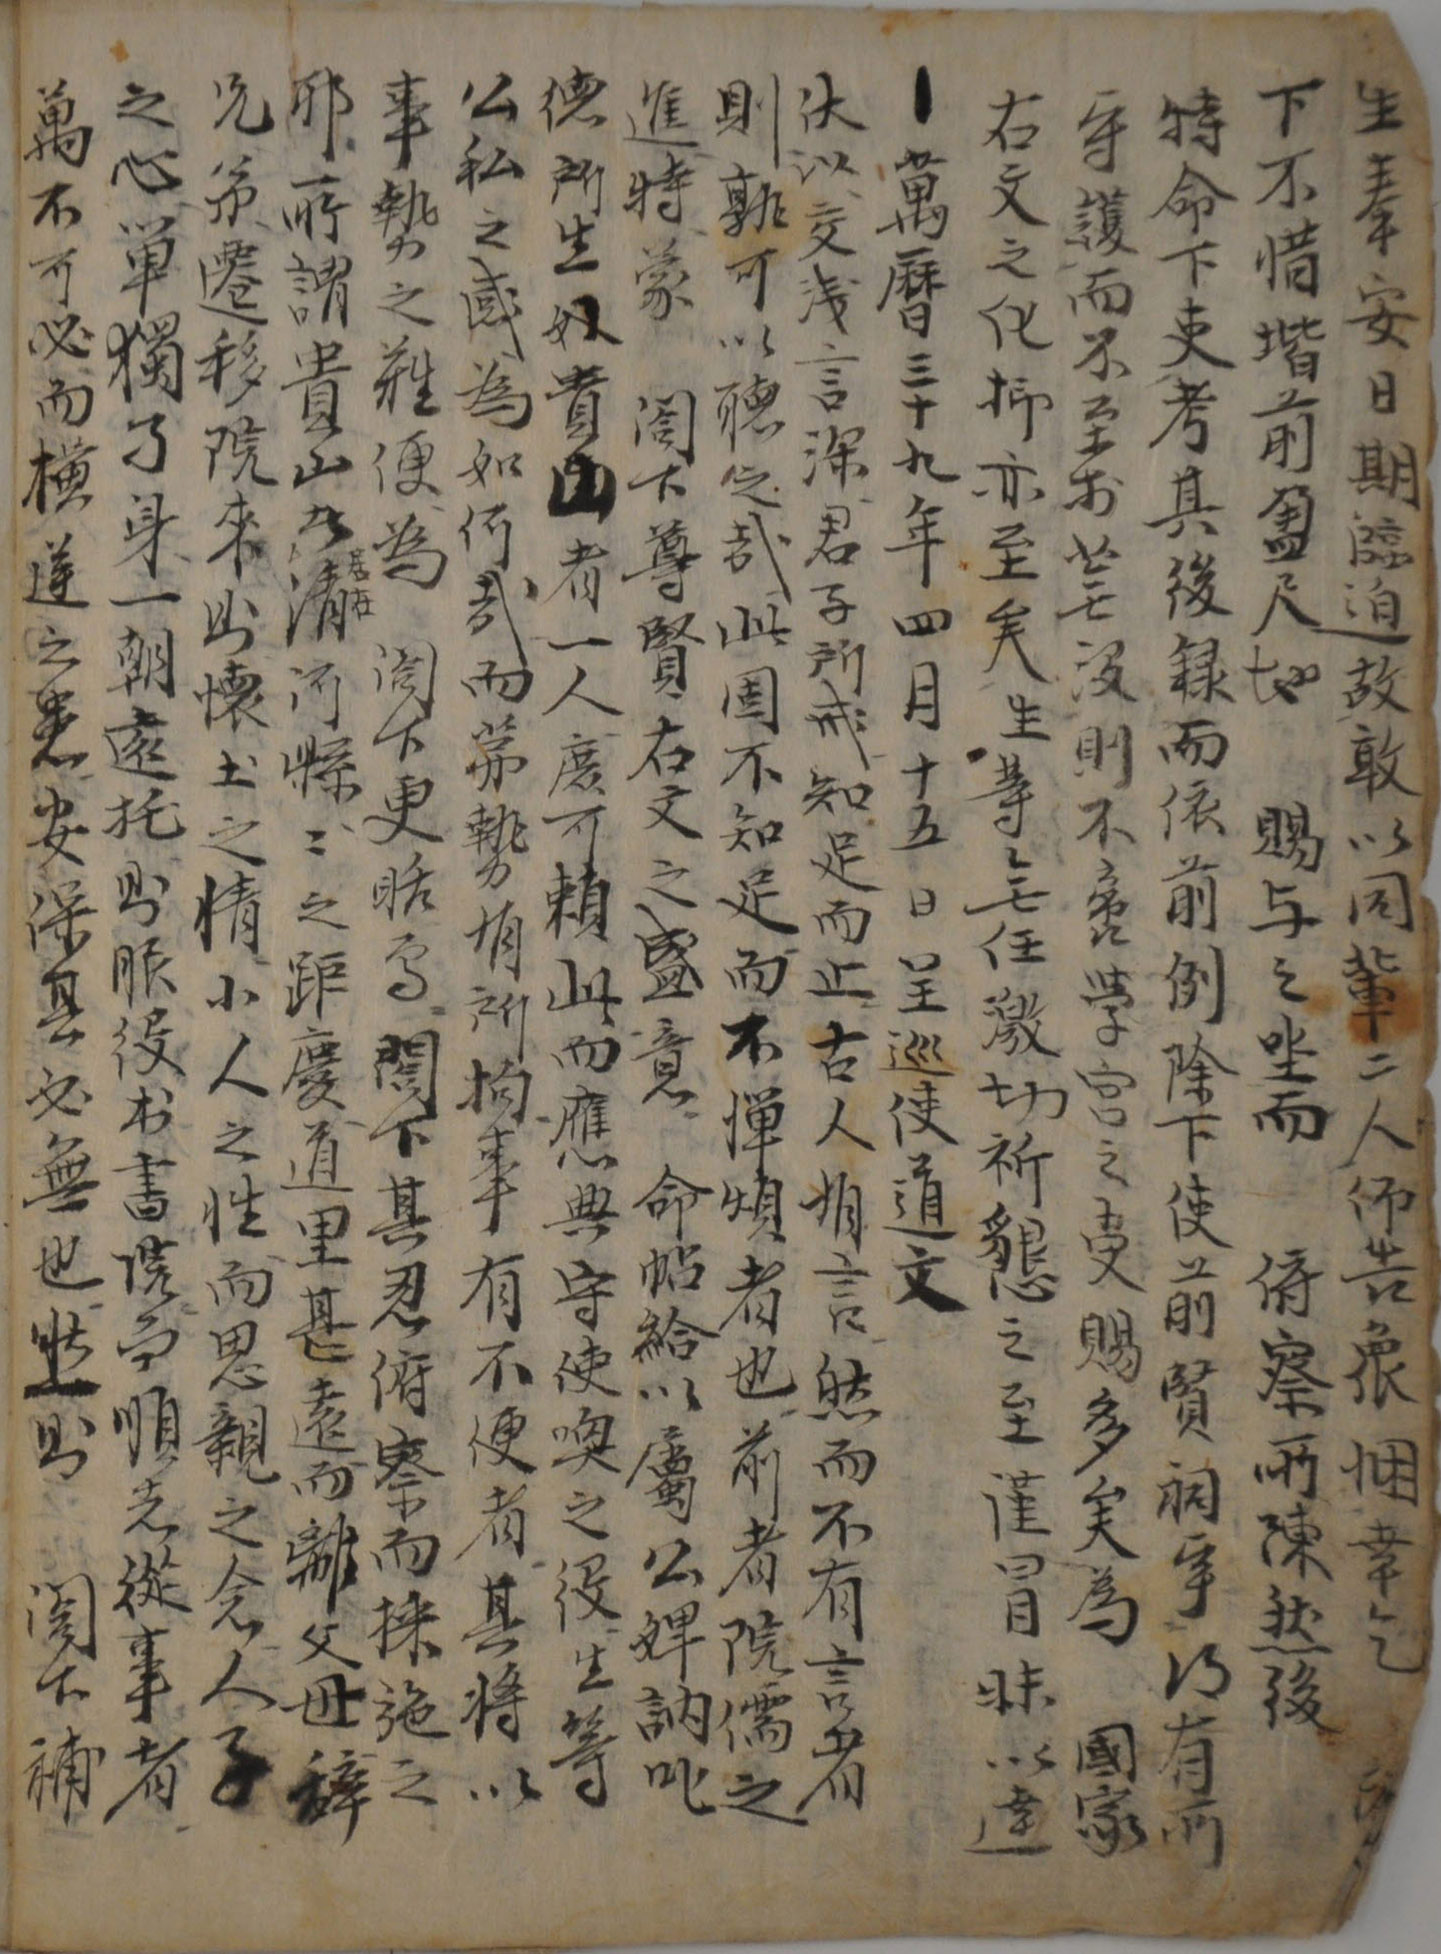 生奉安日期臨迫故敢以同輩二人仰告衆悃幸乞
下不惜堦前盈尺地 賜与之坐而 俯察所陳然後
特命下吏考其後録而依前例除下使前賢祠宇得有所
守護而不至於芒没則不啻學宮之受賜多矣為 國家
右文之化抑亦至矣生等無任激切祈懇之至謹冒昧以達
萬曆三十九年四月十五日呈巡使道文
伏以交淺言深君子所戒知足而止古人有言然而不有言者
則孰可以聽之哉此固不知足而不憚煩者也前者院儒之
進特蒙 閤下尊賢右文之盛意 命帖給以屬公婢訥叱
德所生奴貴山者一人庶可賴此而應典守使喚之役生等
公私之感為如何哉而第勢有所拘事有不便者其將以
事勢之難便為 閤下更聒焉 閤下其忍俯察而採施之
耶所謂貴山者居在清河縣縣之距慶道里甚遠而離父母辭
兄弟遷移院來則懷土之情小人之性而思親之念人子
之心單獨了身一朝遠托則服役於書院而順志從事者
萬不可必而横逆之患安保其必無也然則 閤下補